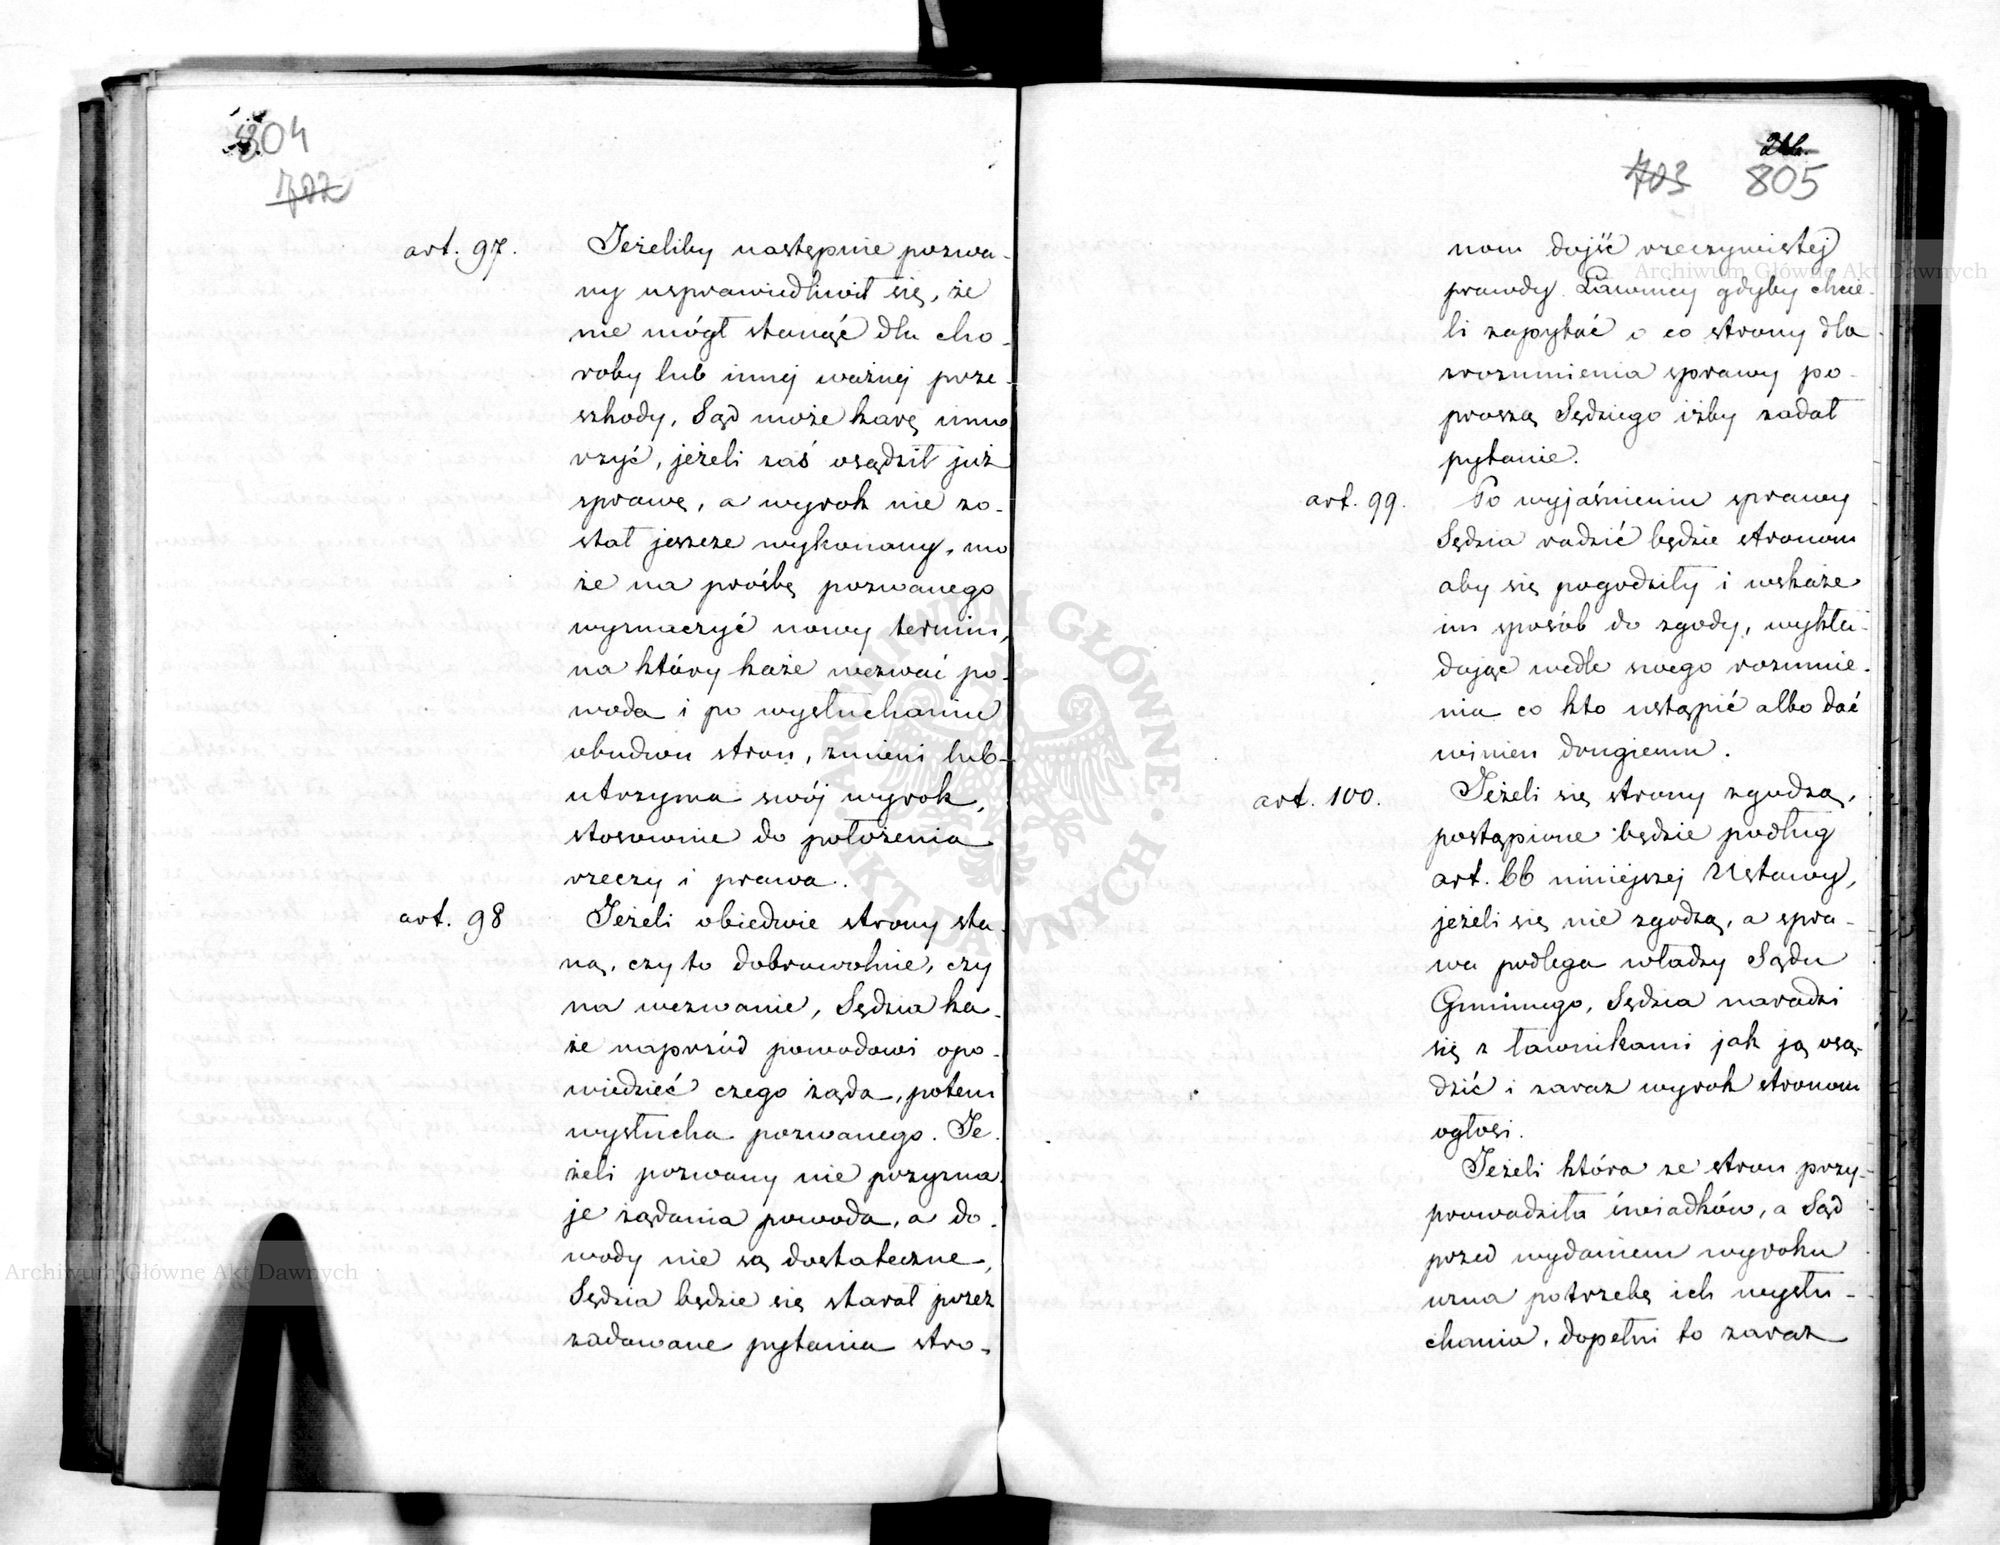 804
702
art. 97.
Jeżeliby następnie pozwa-
ny usprawiedliwił się, że
nie mógł stanąć dla cho-
roby lub innej ważnej prze-
szkody, Sąd może karę umo
rzyć, jeżeli zaś osądził już
sprawę, a wyrok nie zo-
stał jeszcze wykonany, mo
że na prośbę pozwanego
wyznaczyć nowy termin,
na który każe wezwać po-
woda i po wysłuchaniu
obudwu stron, zmieni lub
utrzyma swój wyrok,
stosownie do położenia
rzeczy i prawa.
art. 98
Jeżeli obiedwie strony sta-
ną, czy to dobrowolnie, czy
na wezwanie, Sędzia ka-
że naprzód powodowi opo-
wiedzieć czego żąda, potem
wysłucha pozwanego. Je-
żeli pozwany nie przyzna
je żądania powoda, a do-
wody nie są dostateczne,
Sędzia będzie się starał przez
zadawane pytania stro-
703 805
nom dojść rzeczywistej
prawdy. Ławnicy gdyby chcie-
li zapytać o co strony dla
zrozumienia sprawy po-
proszą Sędziego iżby zadał
pytanie.
art. 99.
Po wyjaśnieniu sprawy
Sędzia radzić będzie stronom
aby się pogodziły i wskaże
im sposób do zgody, wykła-
dając wedle swego rozumie-
nia co kto ustąpić albo dać
winien drugiemu.
art. 100.
Jeżeli się strony zgodzą,
postąpione będzie podług
art. 66 niniejszej Ustawy,
jeżeli się nie zgodzą, a spra-
wa podlega władzy Sądu
Gminnego, Sędzia naradzi
się z ławnikami jak ją osą-
dzić i zaraz wyrok stronom
ogłosi.
Jeżeli która ze stron przy-
prowadziła świadków, a Sąd
przed wydaniem wyroku
uzna potrzebę ich wysłu-
chania, dopełni to zaraz
Archiwum Główne Akt Dawnych
Archiwum Główne Akt Dawnych
ARCHIWUM GŁÓWNE AKT DAWNYCH